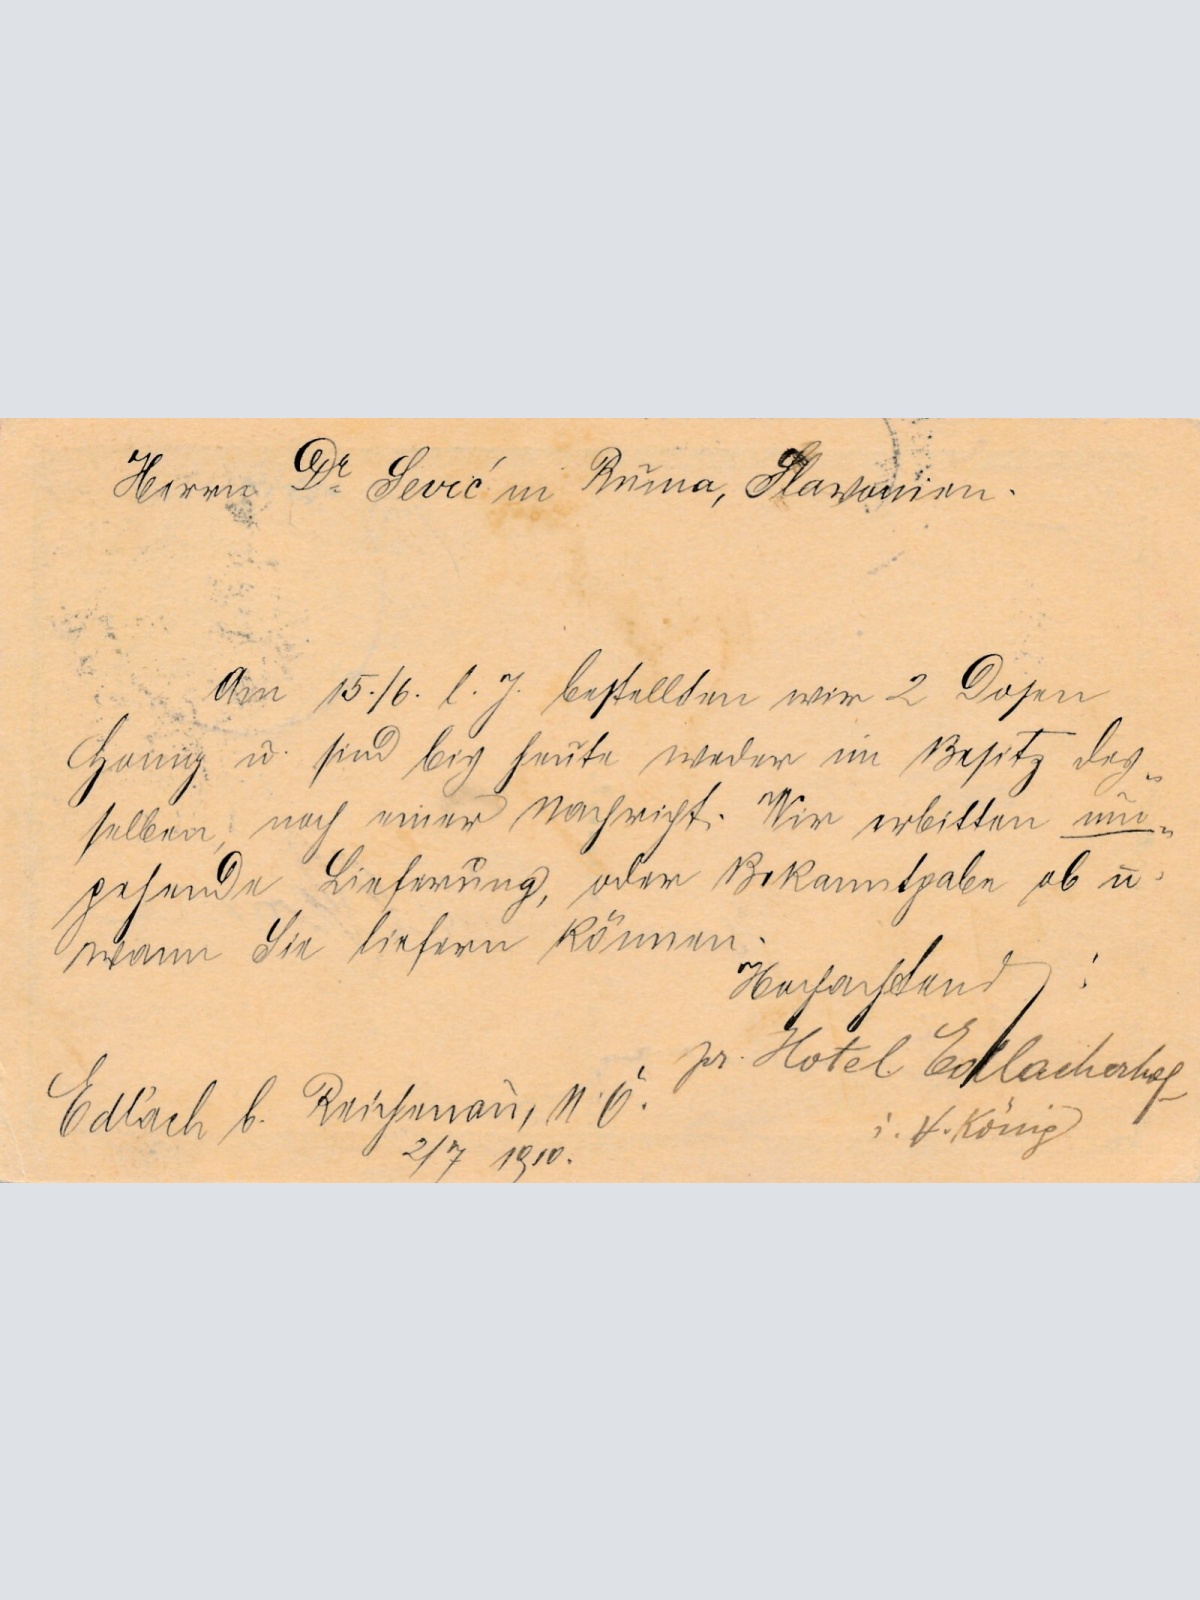 Herrn Dr Sević in Ruma, Slavonien.
Am 15./6. l. J. bestellten wir 2 Dosen
Honig u. sind bis heute weder im Besitz des-
selben, noch einer Nachricht. Wir erbitten um-
gehende Lieferung, oder Bekanntgabe ob u.
wann Sie liefern können.
Hochachtend :
pr. Hotel Edlacherhof
i. V. König
Edlach b. Reichenau, N. Ö.
2/7 1910.